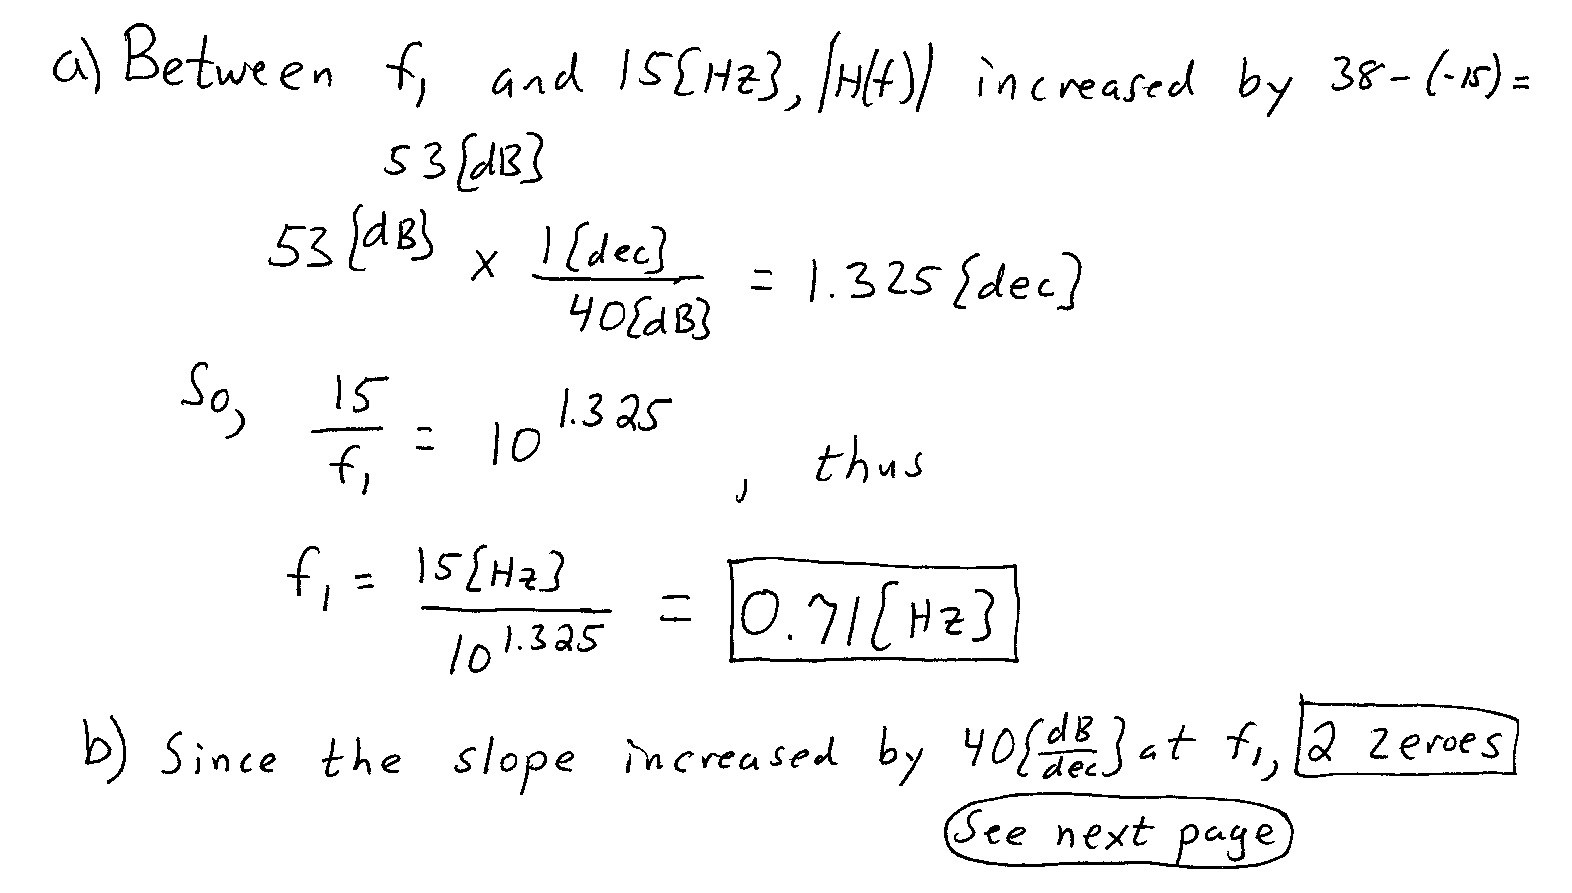 a) Between f₁ and 15[Hz], |H(f)| increased by 38-(-15)=
53[dB]
53[dB] x 1[dec]/40[dB] = 1.325[dec]
So, 15/f₁ = 10^1.325, thus
f₁ = 15[Hz]/10^1.325 = 0.71[Hz]
b) Since the slope increased by 40[dB/dec] at f₁, 2 zeroes
See next page